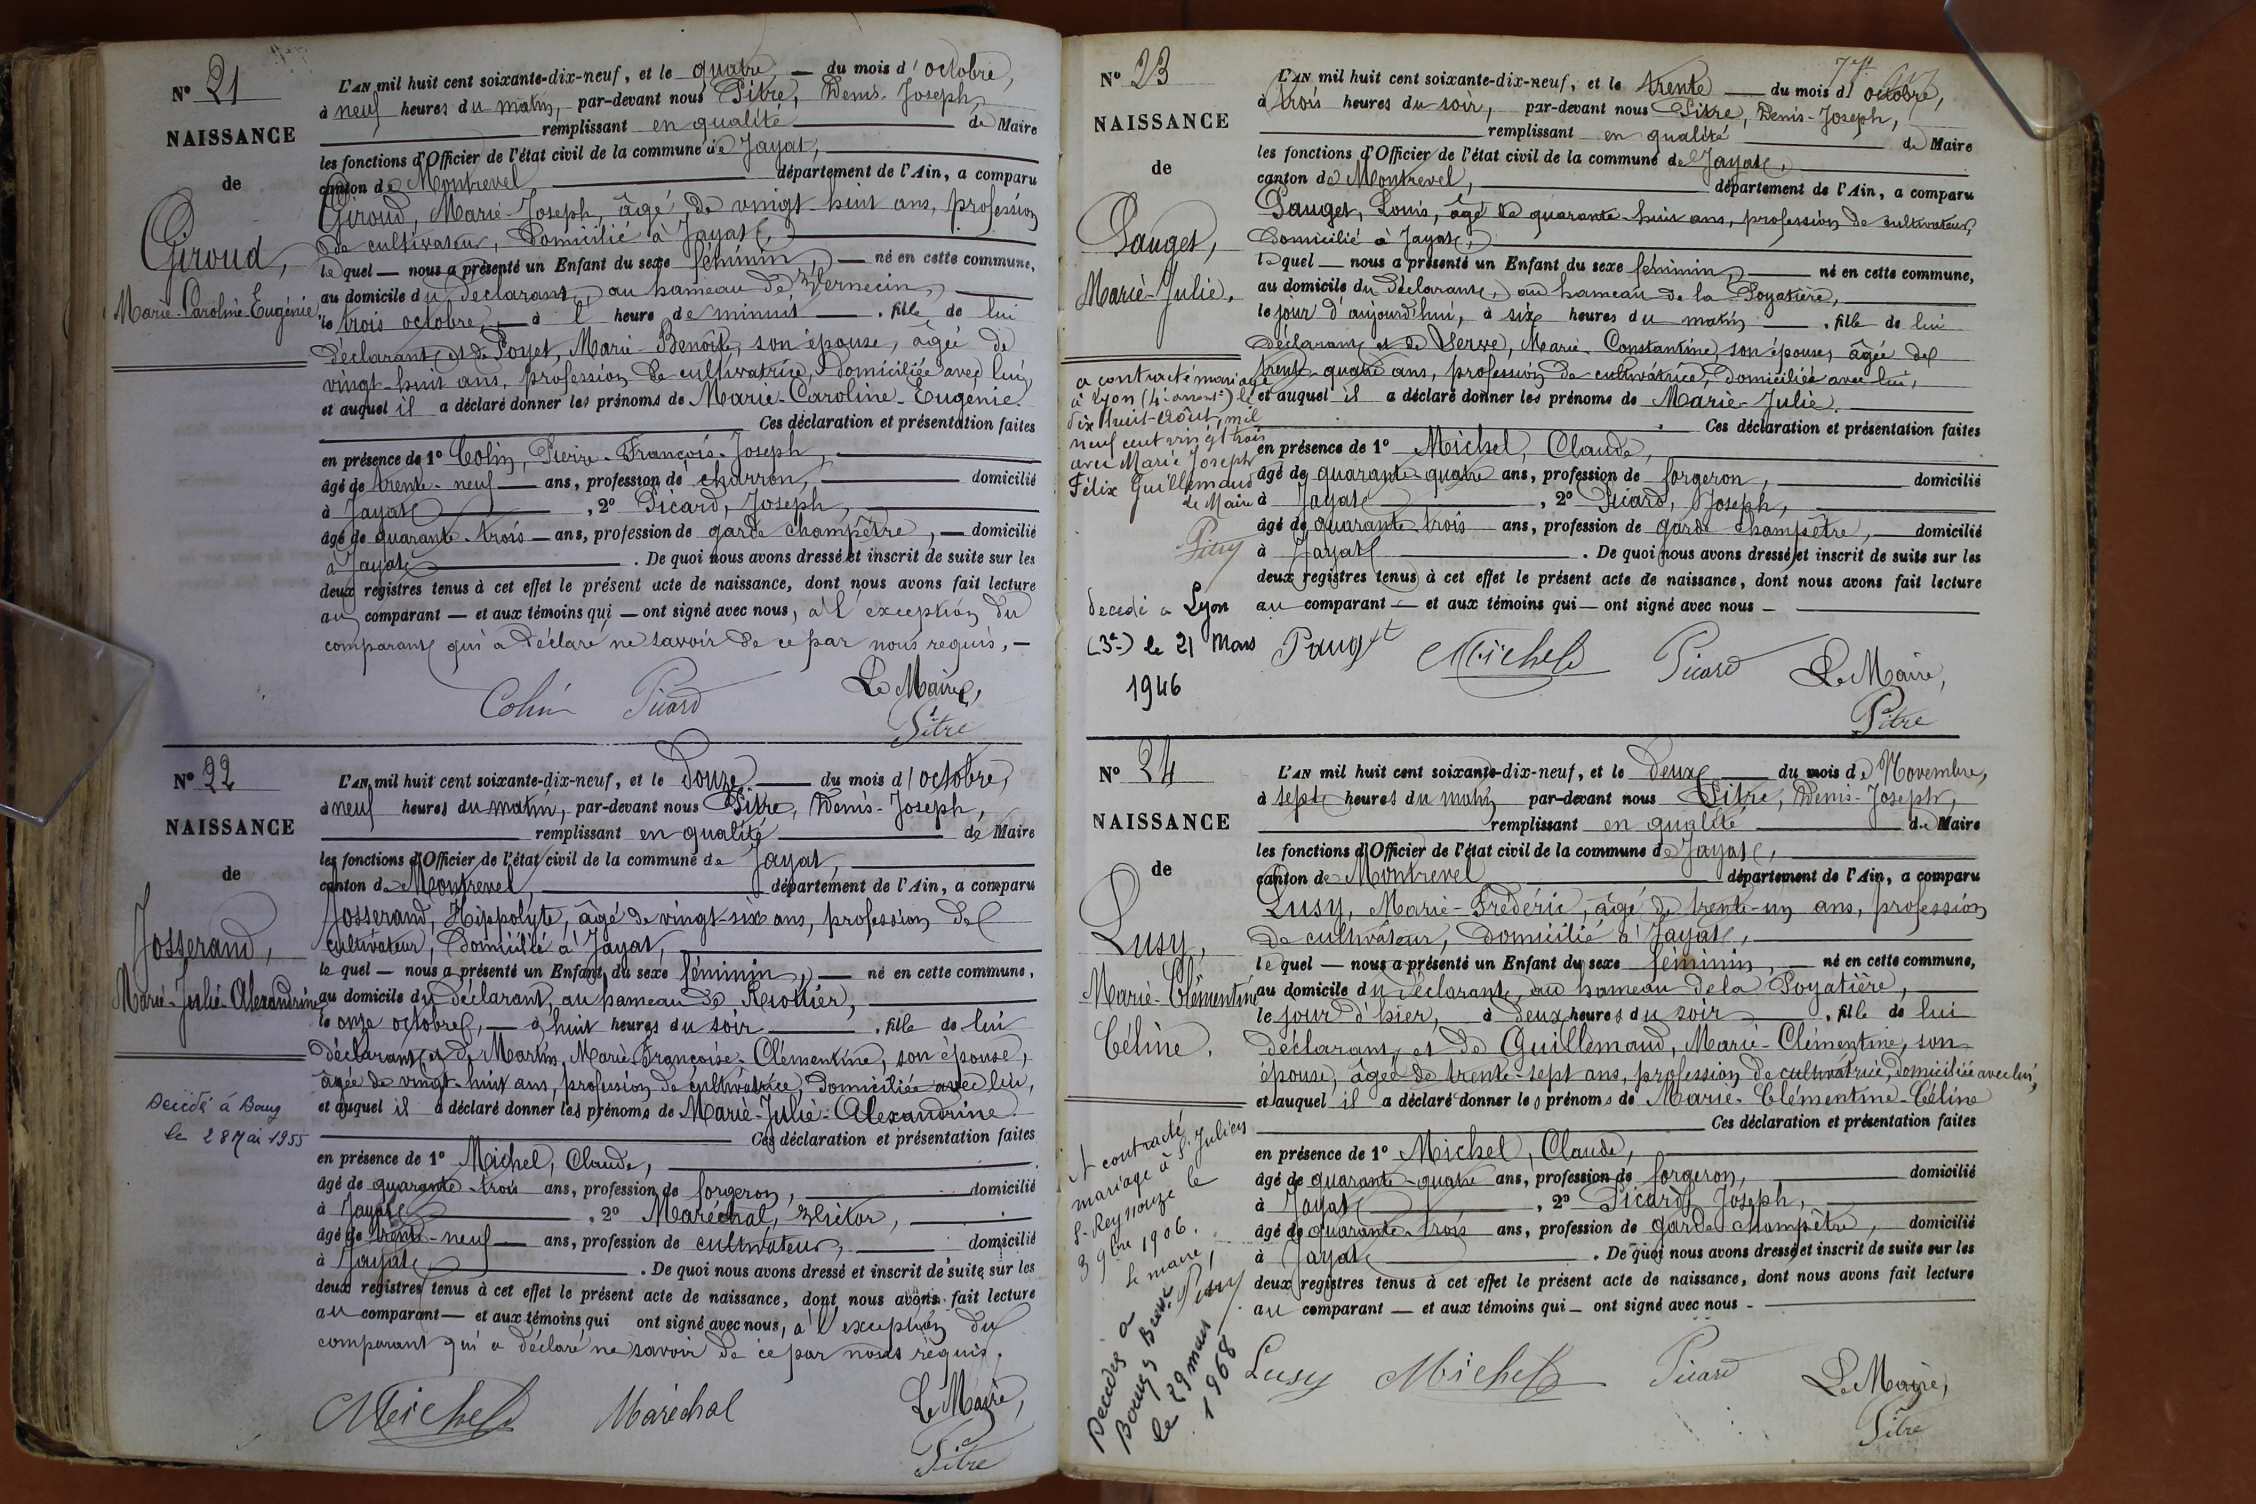 N° 21
NAISSANCE
de
Giroud,
Marie-Caroline-Eugénie.
L'AN mil huit cent soixante-dix-neuf, et le quatre — du mois d'octobre,
à neuf heures du matin, par-devant nous Pitre, Denis-Joseph,
remplissant en qualité de Maire
les fonctions d'Officier de l'état civil de la commune de Jayat,
canton de Montrevel département de l'Ain, a comparu
Giroud, Marie-Joseph, âgé de vingt-huit ans, profession
de cultivateur, domicilié à Jayat,
le quel — nous a présenté un Enfant du sexe féminin, — né en cette commune,
au domicile du déclarant, au hameau de
le trois octobre, — à l' heure de minuit — . fille de lui
déclarant et de Poyet, Marie-Benoîte, son épouse, âgée de
vingt-huit ans, profession de cultivatrice, domiciliée avec lui,
et auquel il a déclaré donner les prénoms de Marie-Caroline-Eugénie.
Ces déclaration et présentation faites
en présence de 1° Colin, Pierre-François-Joseph,
âgé de trente-neuf — ans, profession de charron, domicilié
à Jayat , 2° Picard, Joseph,
âgé de quarante-trois — ans, profession de garde champêtre, — domicilié
à Jayat . De quoi nous avons dressé et inscrit de suite sur les
deux registres tenus à cet effet le présent acte de naissance, dont nous avons fait lecture
au comparant — et aux témoins qui — ont signé avec nous, à l'exception du
comparant qui a déclaré ne savoir de ce par nous requis. —
Colin Picard Le Maire,
Pitre
N° 22
NAISSANCE
de
Josserand,
Marie-Julie-Alexandrine
Décédé à Bourg
le 28 Mai 1955
L'AN mil huit cent soixante-dix-neuf, et le Douze — du mois d'octobre,
à neuf heures du matin, par-devant nous Pitre, Denis-Joseph,
remplissant en qualité de Maire
les fonctions d'Officier de l'état civil de la commune de Jayat,
canton de Montrevel, département de l'Ain, a comparu
Josserand, Hippolyte, âgé de vingt-six ans, profession de
cultivateur, domicilié à Jayat,
le quel — nous a présenté un Enfant du sexe féminin, — né en cette commune,
au domicile du déclarant, au hameau de
le onze octobre, — à huit heures du soir . fille de lui
déclarant et de Martin, Marie-Françoise-Clémentine, son épouse,
âgée de vingt-huit ans, profession de cultivatrice, domiciliée avec lui,
et auquel il a déclaré donner les prénoms de Marie-Julie-Alexandrine.
Ces déclaration et présentation faites
en présence de 1° Michel, Claude,
âgé de quarante-trois ans, profession de forgeron, domicilié
à Jayat , 2° Maréchal, Victor,
âgé de trente-neuf — ans, profession de cultivateur, domicilié
à Jayat . De quoi nous avons dressé et inscrit de suite sur les
deux registres tenus à cet effet le présent acte de naissance, dont nous avons fait lecture
au comparant — et aux témoins qui ont signé avec nous, à l'exception du
comparant qui a déclaré ne savoir de ce par nous requis.
Michel Maréchal Le Maire,
Pitre
N° 23
NAISSANCE
de
Pauget,
Marie-Julie.
a contracté mariage
à Lyon (4e arront) le
dix huit-Août, mil
neuf cent vingt trois
avec Marie Joseph
Félix Guillemaud
le Maire
Pitry
Decedé a Lyon
(3e) le 21 Mars
1946
L'AN mil huit cent soixante-dix-neuf, et le trente — du mois d'octobre,
à trois heures du soir, par-devant nous Pitre, Denis-Joseph,
remplissant en qualité de Maire
les fonctions d'Officier de l'état civil de la commune de Jayat,
canton de Montrevel, département de l'Ain, a comparu
Pauget, Louis, âgé de quarante-huit ans, profession de cultivateur,
domicilié à Jayat,
le quel — nous a présenté un Enfant du sexe féminin, né en cette commune,
au domicile du déclarant, au hameau de la Poyatière,
le jour d'aujourd'hui, à six heures du matin . fille de lui
déclarant et de Serve, Marie-Constantine, son épouse, âgée de
trente-quatre ans, profession de cultivatrice, domiciliée avec lui,
et auquel il a déclaré donner les prénoms de Marie-Julie.
Ces déclaration et présentation faites
en présence de 1° Michel, Claude,
âgé de quarante-quatre ans, profession de forgeron, domicilié
à Jayat , 2° Picard, Joseph,
âgé de quarante-trois ans, profession de garde champêtre, domicilié
à Jayat . De quoi nous avons dressé et inscrit de suite sur les
deux registres tenus à cet effet le présent acte de naissance, dont nous avons fait lecture
au comparant — et aux témoins qui — ont signé avec nous —
Pauget Michel Picard Le Maire,
Pitre
N° 24
NAISSANCE
de
Lusy,
Marie-Clémentine
Céline.
A contracté
mariage à St Julien
s-Reyssouze le
3 9bre 1906.
Le maire,
Pitry
Décédée a
Bourg en Bresse
le 29 mars
1968
L'AN mil huit cent soixante-dix-neuf, et le deux du mois de Novembre,
à sept heures du matin par-devant nous Pitre, Denis-Joseph,
remplissant en qualité de Maire
les fonctions d'Officier de l'état civil de la commune de Jayat,
canton de Montrevel département de l'Ain, a comparu
Lusy, Marie-Frédéric, âgé de trente-un ans, profession
de cultivateur, domicilié à Jayat,
le quel — nous a présenté un Enfant du sexe féminin, — né en cette commune,
au domicile du déclarant, au hameau de la Poyatière,
le jour d'hier, à deux heures du soir . fille de lui
déclarant et de Guillemaud, Marie-Clémentine, son
épouse, âgée de trente-sept ans, profession de cultivatrice, domiciliée avec lui,
et auquel il a déclaré donner les prénoms de Marie-Clémentine-Céline
Ces déclaration et présentation faites
en présence de 1° Michel, Claude,
âgé de quarante-quatre ans, profession de forgeron, domicilié
à Jayat , 2° Picard, Joseph,
âgé de quarante-trois ans, profession de garde champêtre, domicilié
à Jayat . De quoi nous avons dressé et inscrit de suite sur les
deux registres tenus à cet effet le présent acte de naissance, dont nous avons fait lecture
au comparant — et aux témoins qui — ont signé avec nous —
Lusy Michel Picard Le Maire,
Pitre